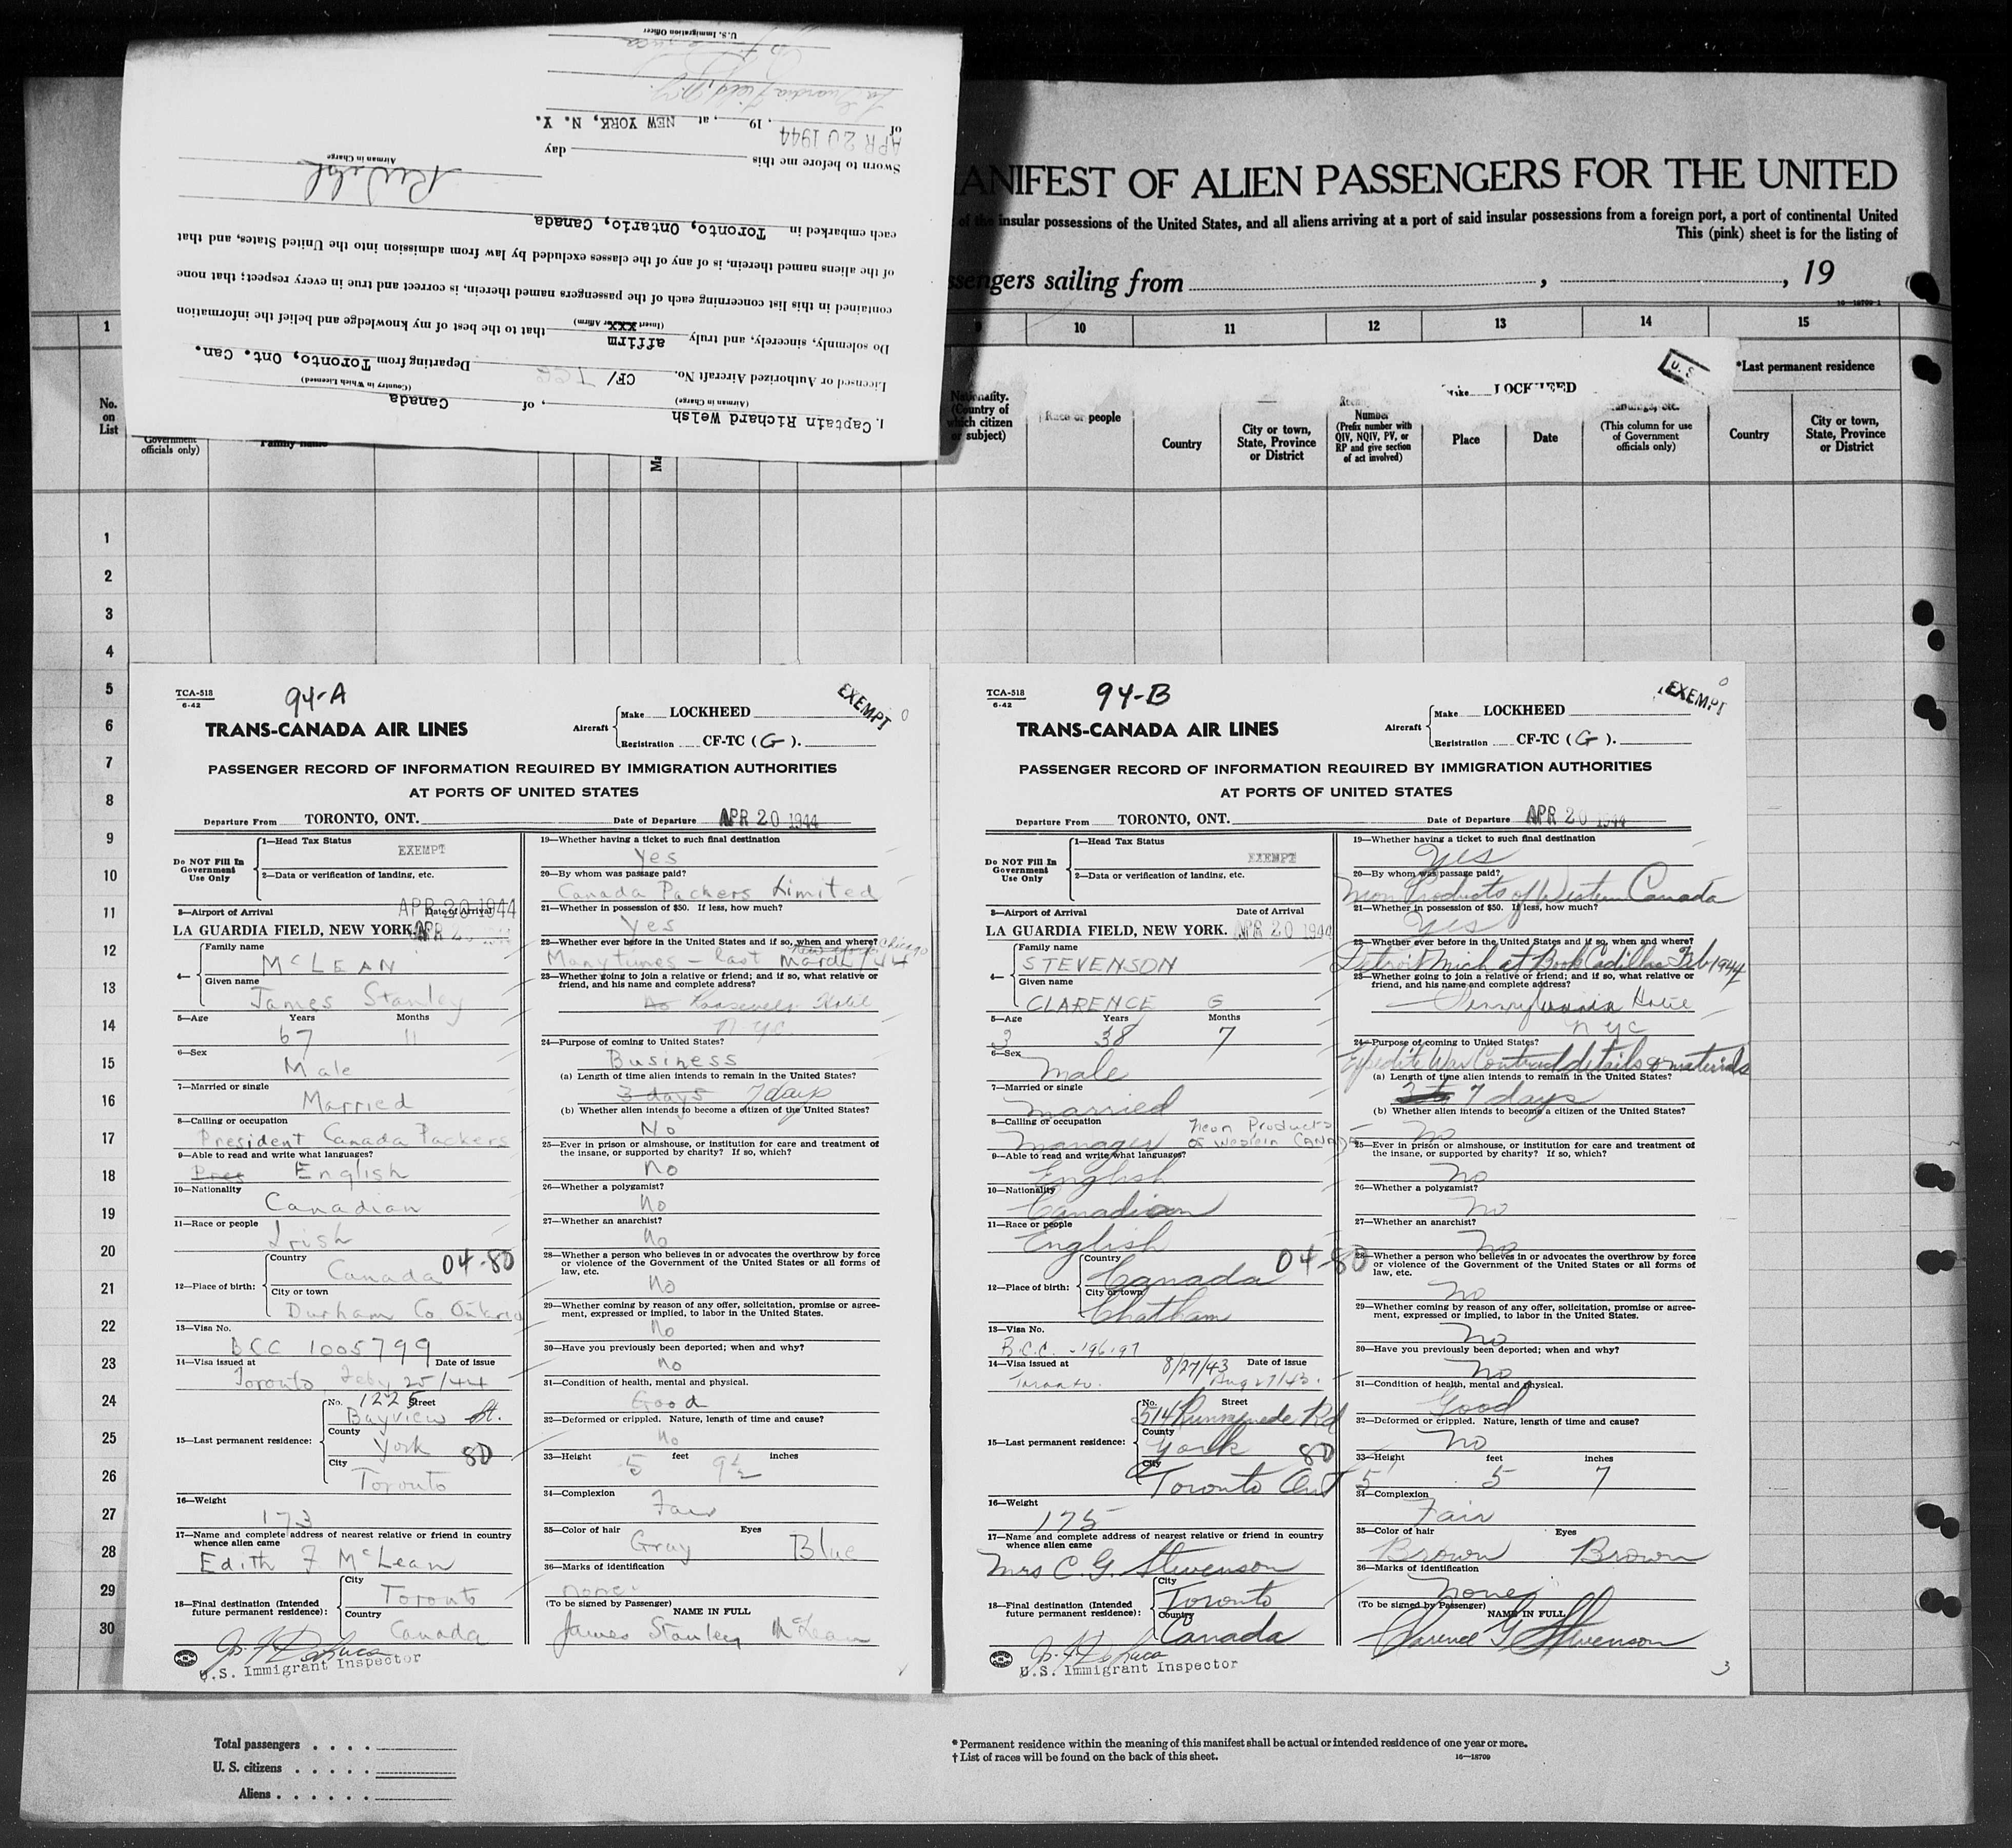 U.S. Immigration Officer
La Guardia Field, N.Y.
of APR 20 1944, 19, at NEW YORK, N. Y.
Sworn to before me this day
Airman in Charge
each embarked in Toronto, Ontario, Canada
of the aliens named therein, is of any of the classes excluded by law from admission into the United States, and that
contained in this list concerning each of the passengers named therein, is correct and true in every respect; that none
(Insert Swear or Affirm)
Do solemnly, sincerely, and truly affirm xxx that to the best of my knowledge and belief the information
Licensed or Authorized Aircraft No. CF/ TCG Departing from Toronto, Ont. Can.
(Airman in Charge) (Country in Which Licensed)
I, Captain Richard Welsh, of Canada
ANIFEST OF ALIEN PASSENGERS FOR THE UNITED
of the insular possessions of the United States, and all aliens arriving at a port of said insular possessions from a foreign port, a port of continental United
This (pink) sheet is for the listing of
ssengers sailing from , , 19
16—18709-1
1 9 10 11 12 13 14 15
U. S.
Make LOCKHEED
*Last permanent residence
No. on List
Government officials only)
Family name
Nationality. (Country of which citizen or subject)
Race or people
Country
City or town, State, Province or District
Number (Prefix number with QIV, NQIV, PV, or RP and give section of act involved)
Place
Date
landings, etc. (This column for use of Government officials only)
Country
City or town, State, Province or District
1
2
3
4
5
6
7
8
9
10
11
12
13
14
15
16
17
18
19
20
21
22
23
24
25
26
27
28
29
30
TCA-518
6-42
94-A
EXEMPT
TRANS-CANADA AIR LINES
Aircraft Make LOCKHEED
Registration CF-TC (G).
PASSENGER RECORD OF INFORMATION REQUIRED BY IMMIGRATION AUTHORITIES
AT PORTS OF UNITED STATES
Departure From TORONTO, ONT. Date of Departure APR 20 1944
Do NOT Fill In Government Use Only
1—Head Tax Status EXEMPT
2—Data or verification of landing, etc.
3—Airport of Arrival Date of Arrival APR 20 1944
LA GUARDIA FIELD, NEW YORK. APR 20 1944
4— Family name
McLEAN
Given name
James Stanley
5—Age Years Months
67 11
6—Sex
Male
7—Married or single
Married
8—Calling or occupation
President Canada Packers
9—Able to read and write what languages?
Pres English
10—Nationality
Canadian
11—Race or people
Irish
12—Place of birth: Country
Canada 04-80
City or town
Durham Co Ontario
13—Visa No.
BCC 1005799
14—Visa issued at Date of issue
Toronto Feby 25/44
15—Last permanent residence: No. 1225 Street
Bayview St.
County
York 80
City
Toronto
16—Weight
173
17—Name and complete address of nearest relative or friend in country whence alien came
Edith F McLean
18—Final destination (Intended future permanent residence): City
Toronto
Country
Canada
U.S. Immigrant Inspector
19—Whether having a ticket to such final destination
Yes
20—By whom was passage paid?
Canada Packers Limited
21—Whether in possession of $50. If less, how much?
Yes
22—Whether ever before in the United States and if so, when and where?
Many times - last March /44 Chicago
23—Whether going to join a relative or friend; and if so, what relative or friend, and his name and complete address?
No Roosevelt Hotel
N.Y.C.
24—Purpose of coming to United States?
Business
(a) Length of time alien intends to remain in the United States?
3 days 7 days
(b) Whether alien intends to become a citizen of the United States?
No
25—Ever in prison or almshouse, or institution for care and treatment of the insane, or supported by charity? If so, which?
No
26—Whether a polygamist?
No
27—Whether an anarchist?
No
28—Whether a person who believes in or advocates the overthrow by force or violence of the Government of the United States or all forms of law, etc.
No
29—Whether coming by reason of any offer, solicitation, promise or agreement, expressed or implied, to labor in the United States.
No
30—Have you previously been deported; when and why?
No
31—Condition of health, mental and physical.
Good
32—Deformed or crippled. Nature, length of time and cause?
No
33—Height feet inches
5 9½
34—Complexion
Fair
35—Color of hair Eyes
Gray Blue
36—Marks of identification
none
(To be signed by Passenger) NAME IN FULL
James Stanley McLean
TCA-518
6-42
94-B
EXEMPT
TRANS-CANADA AIR LINES
Aircraft Make LOCKHEED
Registration CF-TC (G).
PASSENGER RECORD OF INFORMATION REQUIRED BY IMMIGRATION AUTHORITIES
AT PORTS OF UNITED STATES
Departure From TORONTO, ONT. Date of Departure APR 20 1944
Do NOT Fill In Government Use Only
1—Head Tax Status EXEMPT
2—Data or verification of landing, etc.
3—Airport of Arrival Date of Arrival
LA GUARDIA FIELD, NEW YORK. APR 20 1944
4— Family name
STEVENSON
Given name
CLARENCE G
5—Age Years Months
3 38 7
6—Sex
Male
7—Married or single
Married
8—Calling or occupation
Manager Neon Products of Western CANADA
9—Able to read and write what languages?
English
10—Nationality
Canadian
11—Race or people
English
12—Place of birth: Country
Canada 04-80
City or town
Chatham
13—Visa No.
B.C.C. -19697
14—Visa issued at Date of issue
Toronto. 8/27/43 Aug 27/43.
15—Last permanent residence: No. Street
514 Runnymede Rd
County
York 80
City
Toronto Ont
16—Weight
175
17—Name and complete address of nearest relative or friend in country whence alien came
Mrs C. G. Stevenson
18—Final destination (Intended future permanent residence): City
Toronto
Country
Canada
U.S. Immigrant Inspector
19—Whether having a ticket to such final destination
Yes
20—By whom was passage paid?
Neon Products of Western Canada
21—Whether in possession of $50. If less, how much?
Yes
22—Whether ever before in the United States and if so, when and where?
Detroit Mich at Book Cadillac Feb 1944
23—Whether going to join a relative or friend; and if so, what relative or friend, and his name and complete address?
Pennsylvania Hotel
NYC
24—Purpose of coming to United States?
Expedite War Contract details & materials
(a) Length of time alien intends to remain in the United States?
7 days
(b) Whether alien intends to become a citizen of the United States?
No
25—Ever in prison or almshouse, or institution for care and treatment of the insane, or supported by charity? If so, which?
No
26—Whether a polygamist?
No
27—Whether an anarchist?
No
28—Whether a person who believes in or advocates the overthrow by force or violence of the Government of the United States or all forms of law, etc.
No
29—Whether coming by reason of any offer, solicitation, promise or agreement, expressed or implied, to labor in the United States.
No
30—Have you previously been deported; when and why?
No
31—Condition of health, mental and physical.
Good
32—Deformed or crippled. Nature, length of time and cause?
No
33—Height feet inches
5' 5 7
34—Complexion
Fair
35—Color of hair Eyes
Brown Brown
36—Marks of identification
None
(To be signed by Passenger) NAME IN FULL
Clarence G Stevenson
3
Total passengers . . . .
U. S. citizens . . . . .
Aliens . . . . . .
* Permanent residence within the meaning of this manifest shall be actual or intended residence of one year or more.
† List of races will be found on the back of this sheet.
16—18709